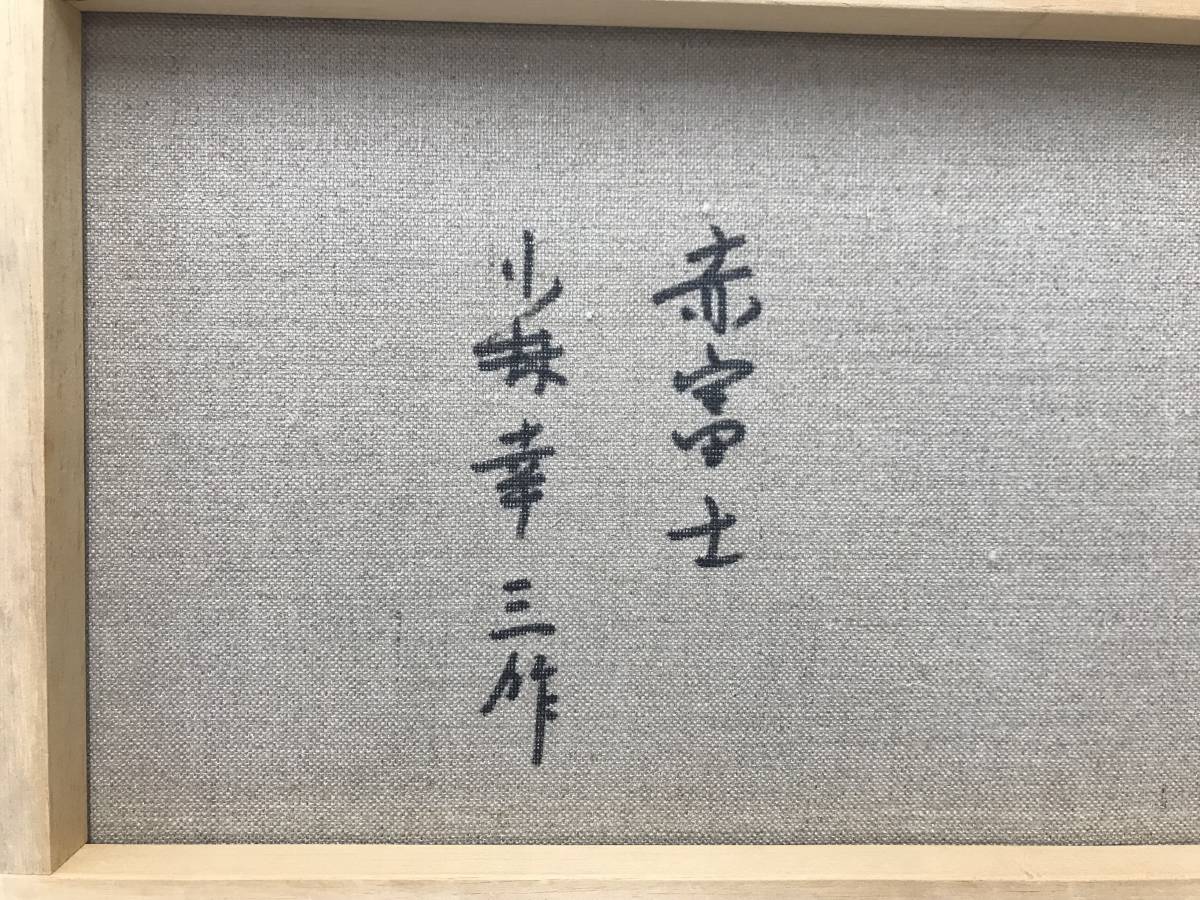 赤富士
小林幸三作